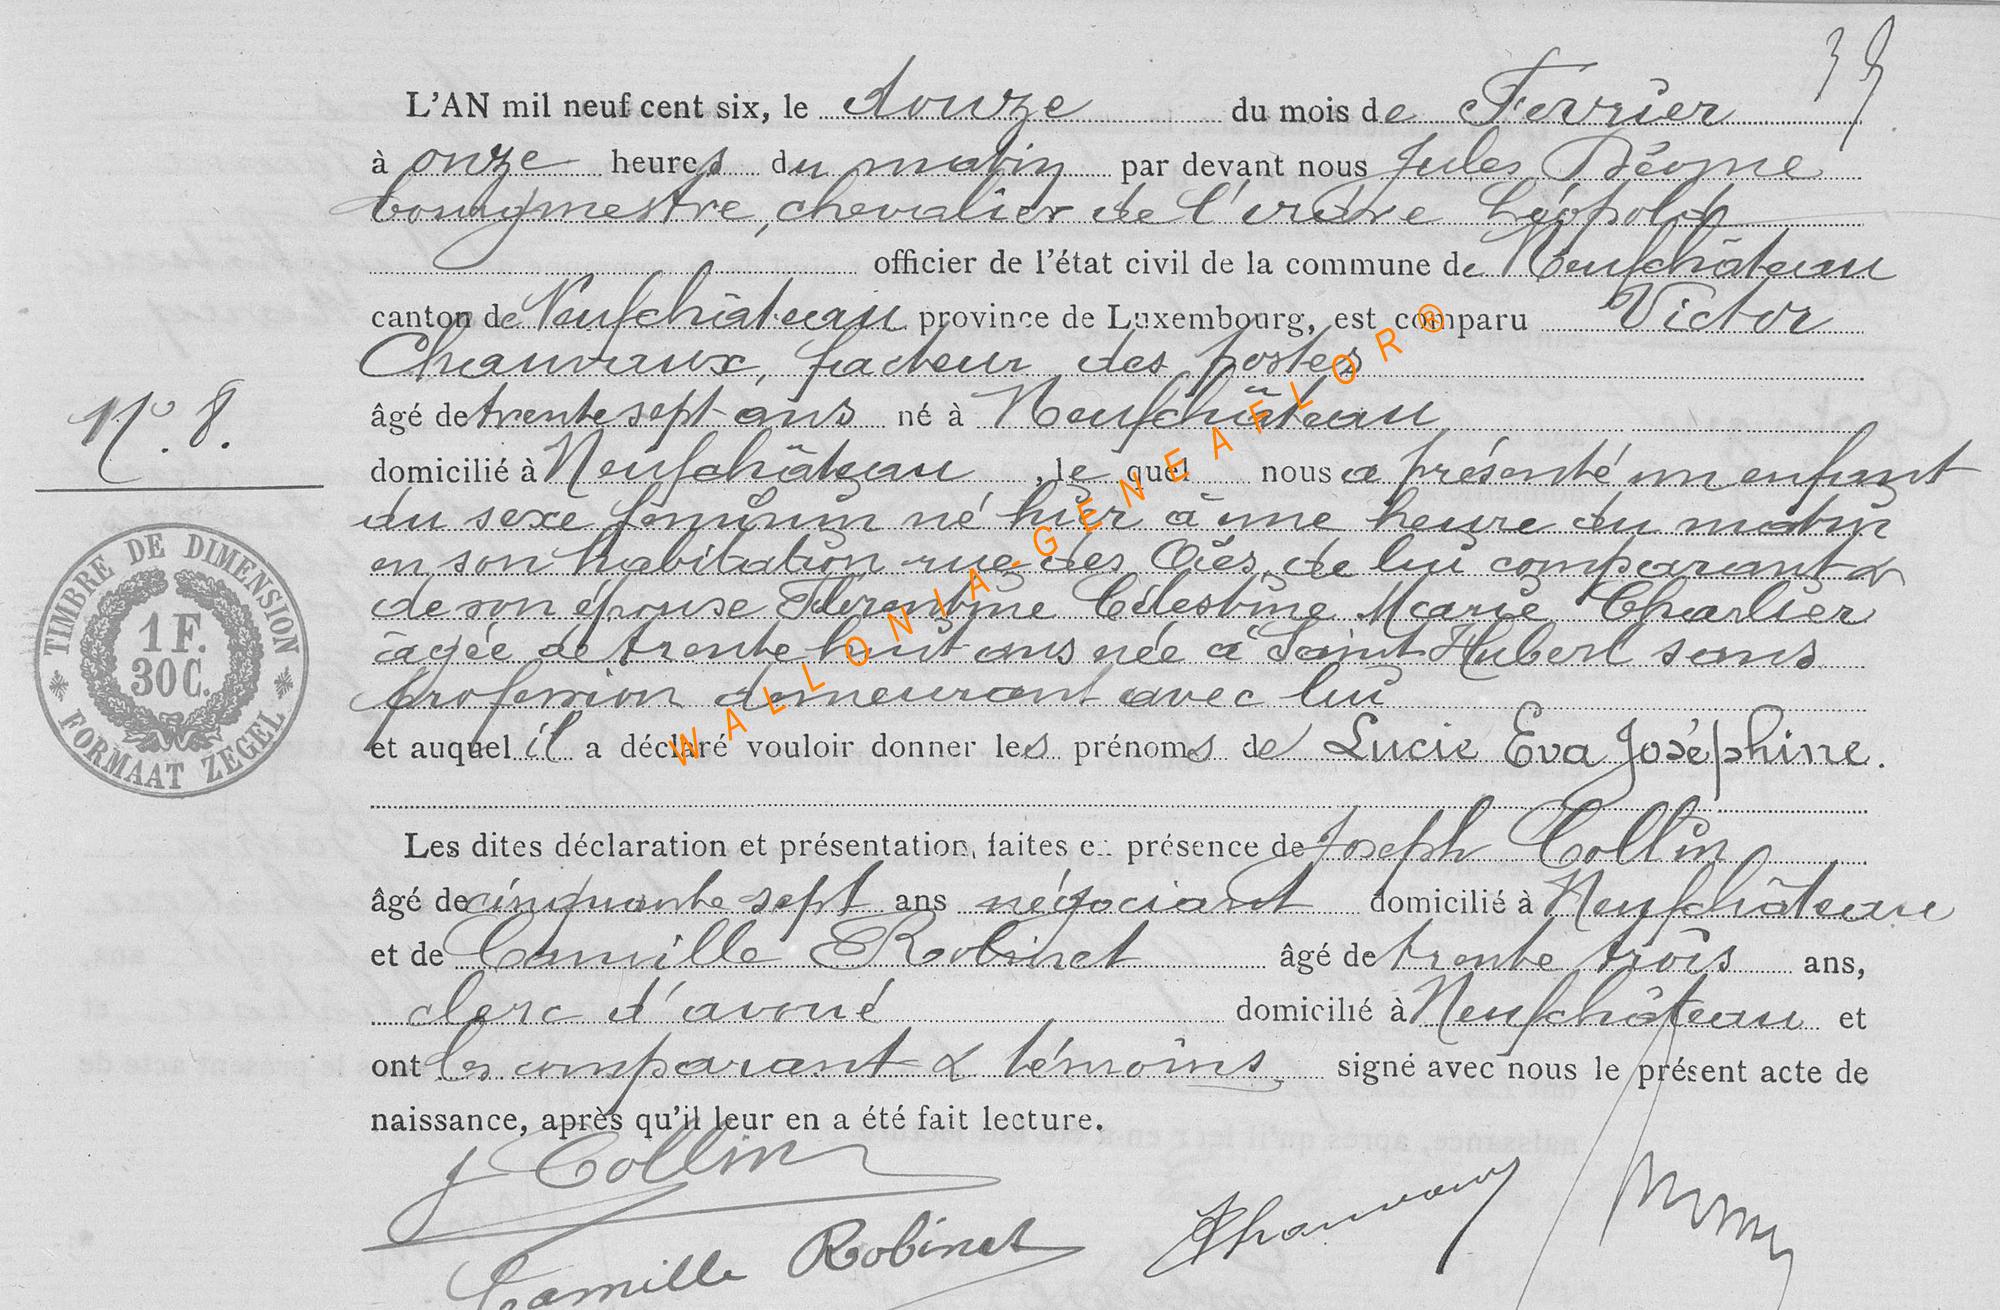 L'AN mil neuf cent six, le douze du mois de Fevrier
à onze heures du matin par devant nous Jules
bourgmestre, chevalier de l'ordre Léopold
officier de l'état civil de la commune de Neufchâteau
canton de Neufchâteau province de Luxembourg, est comparu Victor
Chauvaux, facteur des postes
âgé de trente sept ans né à Neufchâteau
N.° 8.
domicilié à Neufchâteau, le quel nous a présenté un enfant
du sexe féminin né hier à une heure du matin
en son habitation rue des Oies, de lui comparant &
de son épouse Florentine Célestine Marie Charlier
âgée de trente huit ans née à Saint Hubert sans
profession demeurant avec lui
et auquel il a déclaré vouloir donner les prénoms de Lucie Eva Joséphine.
Les dites déclaration et présentation, faites en présence de Joseph Collin
âgé de cinquante sept ans négociant domicilié à Neufchâteau
et de Camille Robinet âgé de trente trois ans,
clerc d'avoué domicilié à Neufchâteau et
ont les comparant & témoins signé avec nous le présent acte de
naissance, après qu'il leur en a été fait lecture.
J Collin
Camille Robinet
Chauvaux
TIMBRE DE DIMENSION
1 F.
30 C.
FORMAAT ZEGEL
WALLONIA-GENEAFLOR®